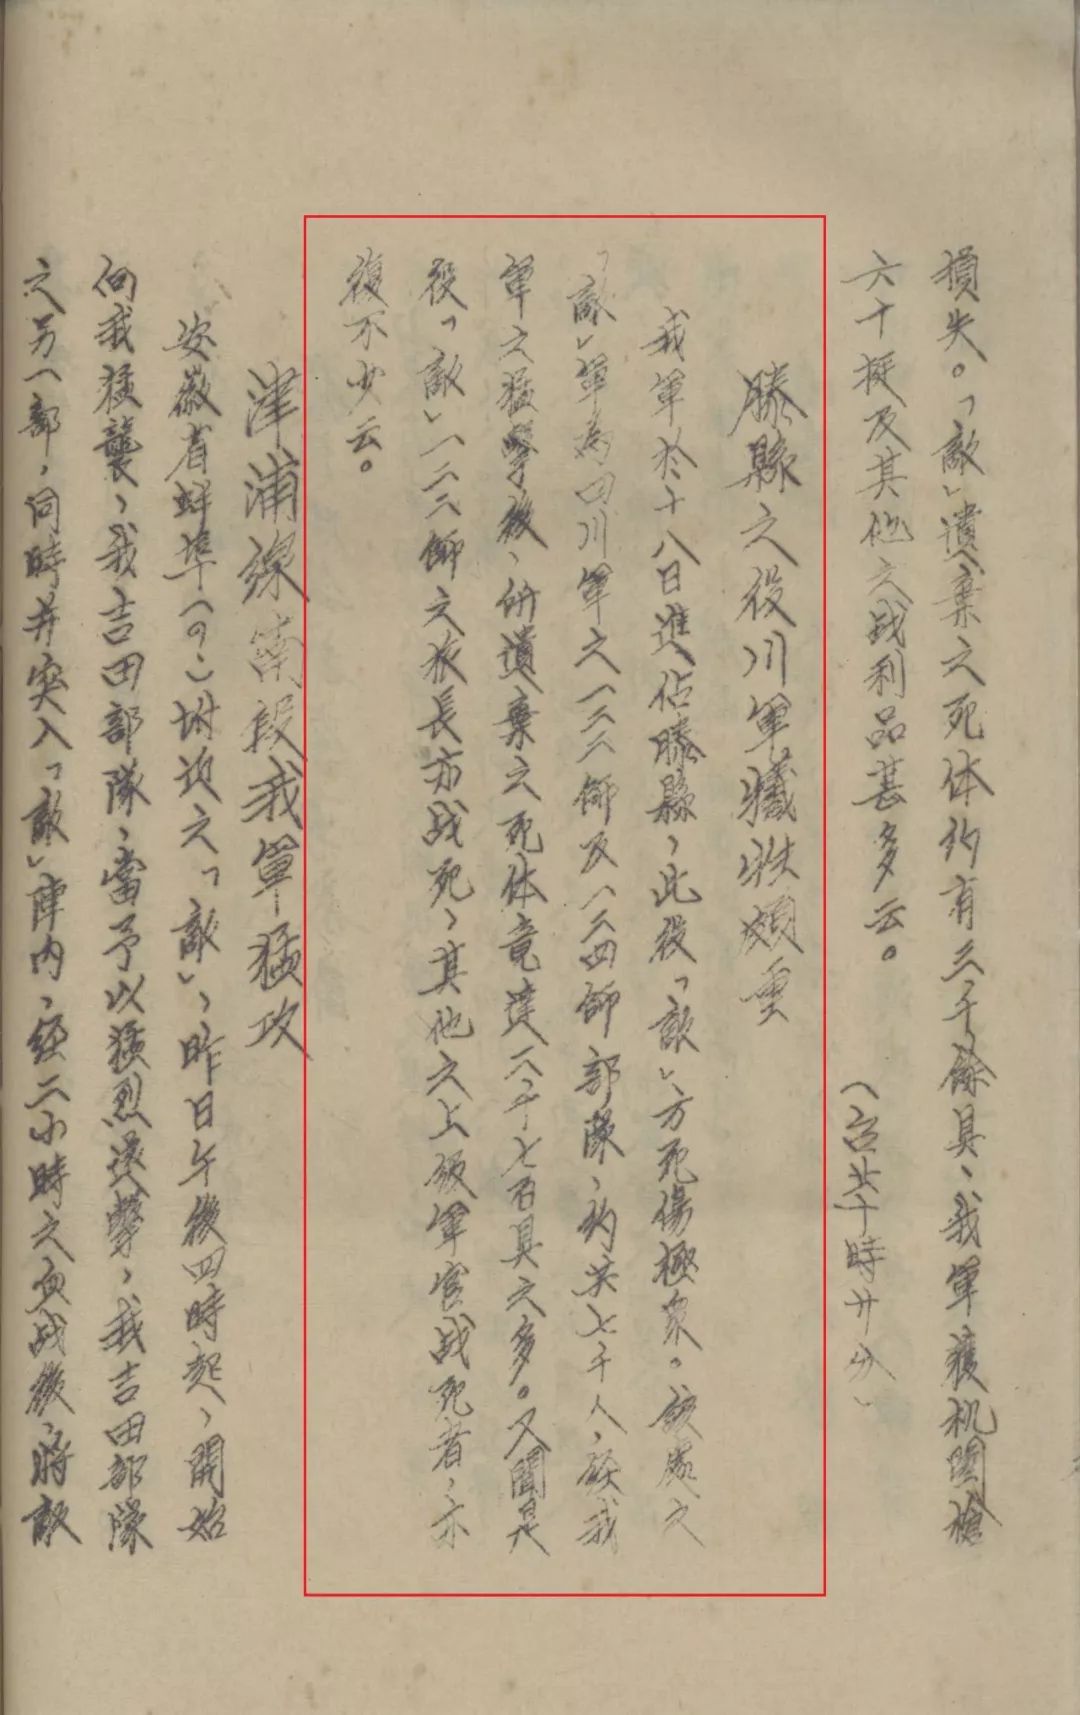 損失。「敵」遺棄之死体約有三千餘具、我軍獲机関槍
六十挺及其他之战利品甚多云。　（台廿十時廿分）
滕縣之役川軍犧牲頗重
我軍於十八日進佔滕縣、此役「敵」方死傷極衆。該處之
「敵」軍為四川軍之一二二師及一二四師部隊、約共七千人、經我
軍之猛擊後、所遺棄之死体竟達二千七百具之多。又聞是
役「敵」一二二師之旅長亦战死、其他之上級軍官战死者、亦
復不少云。
津浦線南段我軍猛攻
安徽省蚌埠（？）附近之「敵」、昨日午後四時起、開始
向我猛襲、我吉田部隊、當予以猛烈還擊、我吉田部隊
之另一部、同時并突入「敵」陣内、經二小時之血战後、將敵